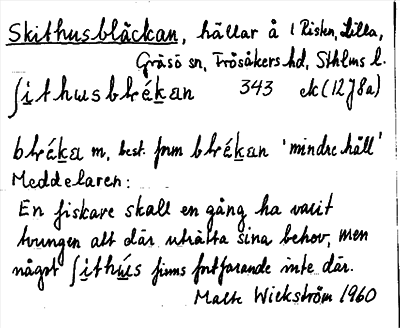 Skithusbläckan, hällar å l Risten, Lilla,
Gräsö sn, Frösåkers hd, Sthlms l.
ʃithusbrékan 343 ek (12J8a)
bréka m, best. form brékan 'mindre häll'
Meddelaren:
En fiskare skall en gång ha varit
tvungen att där uträtta sina behov, men
något ʃithús finns fortfarande inte där.
Malte Wickström 1960